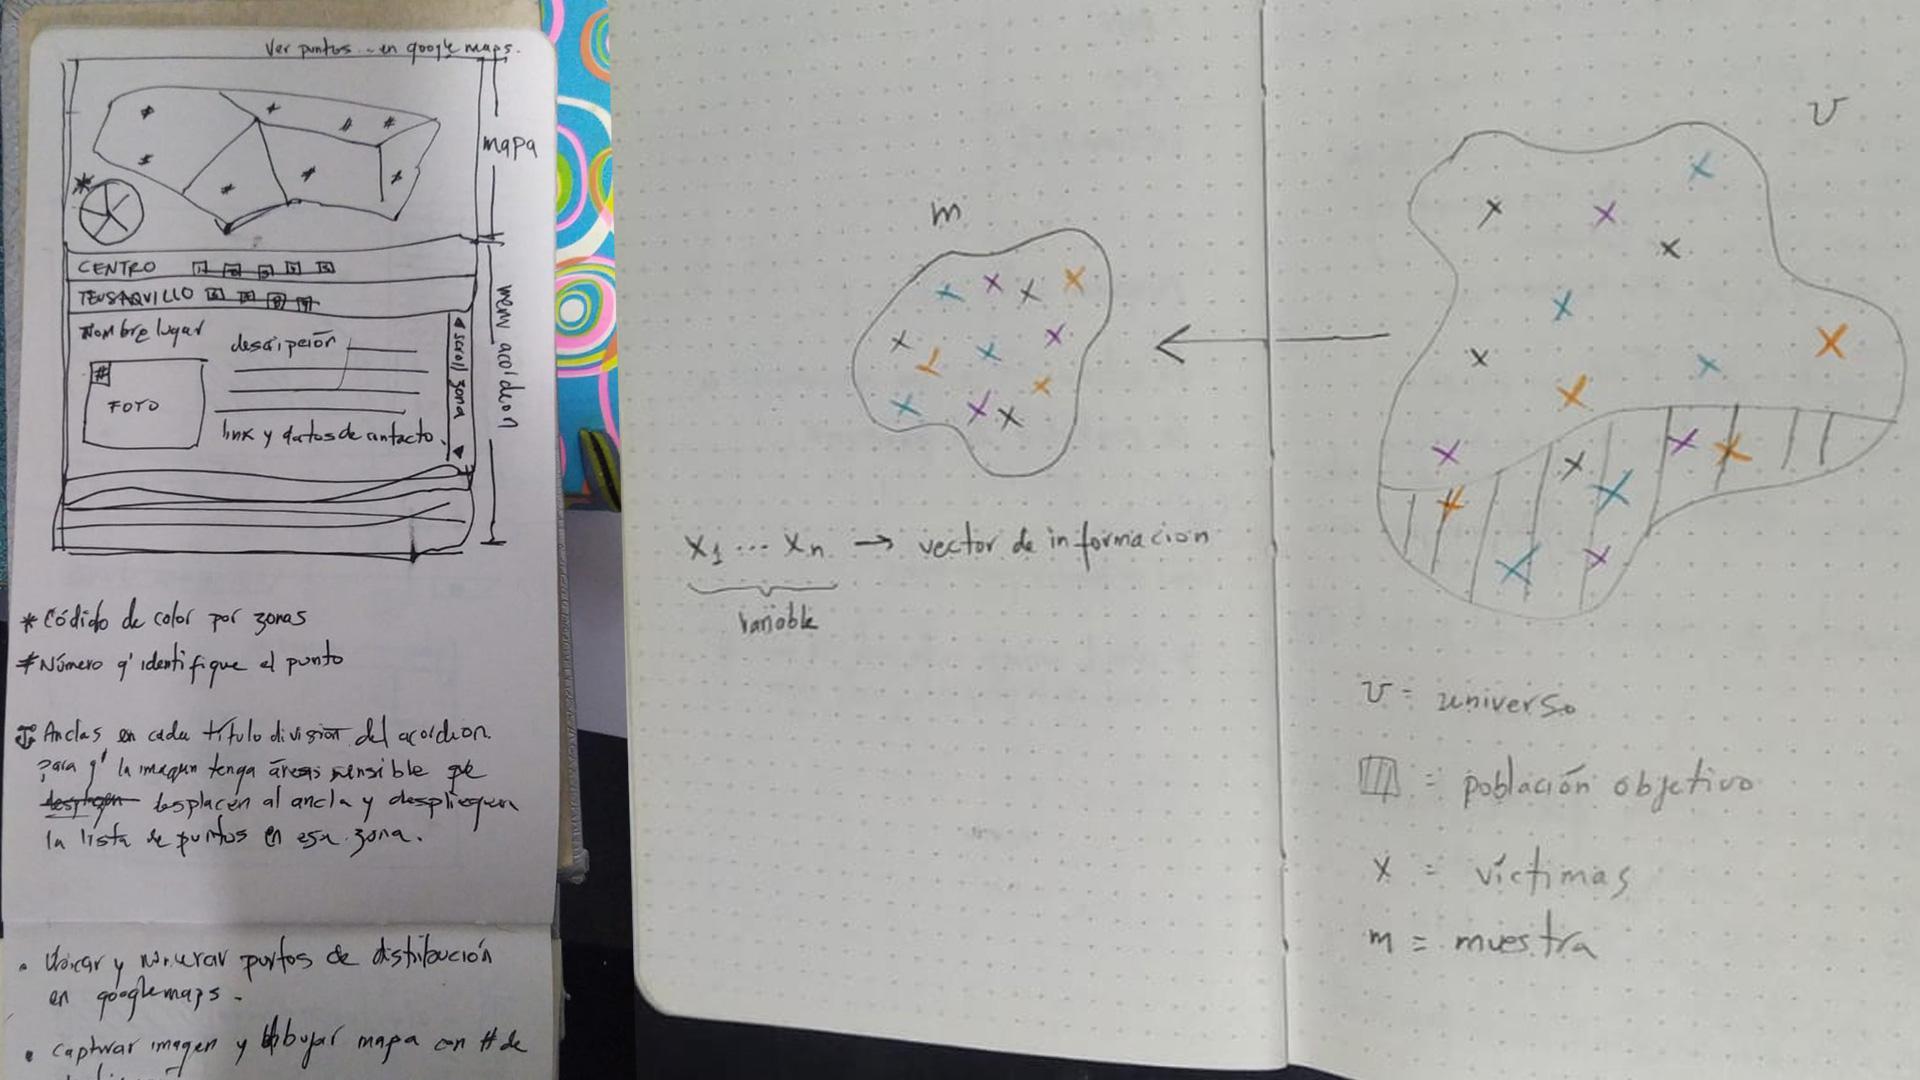 Ver puntos en google maps.
mapa
*
CENTRO 1 2 3 4 5
TEUSAQUILLO
Nombre lugar
descripción
#
FOTO
link y datos de contacto.
scroll zona
menu acordeon
* Códido de color por zonas
# Número q' identifique el punto
Anclas en cada título división del acordeon.
para q' la imagen tenga áreas sensible que
desplacen al ancla y desplieguen
la lista de puntos en esa zona.
• Ubicar y numerar puntos de distribución
en googlemaps.
• capturar imagen y dibujar mapa con # de
m
U
x1 ... xn → vector de informacion
variable
U = universo
= población objetivo
x = víctimas
m = muestra